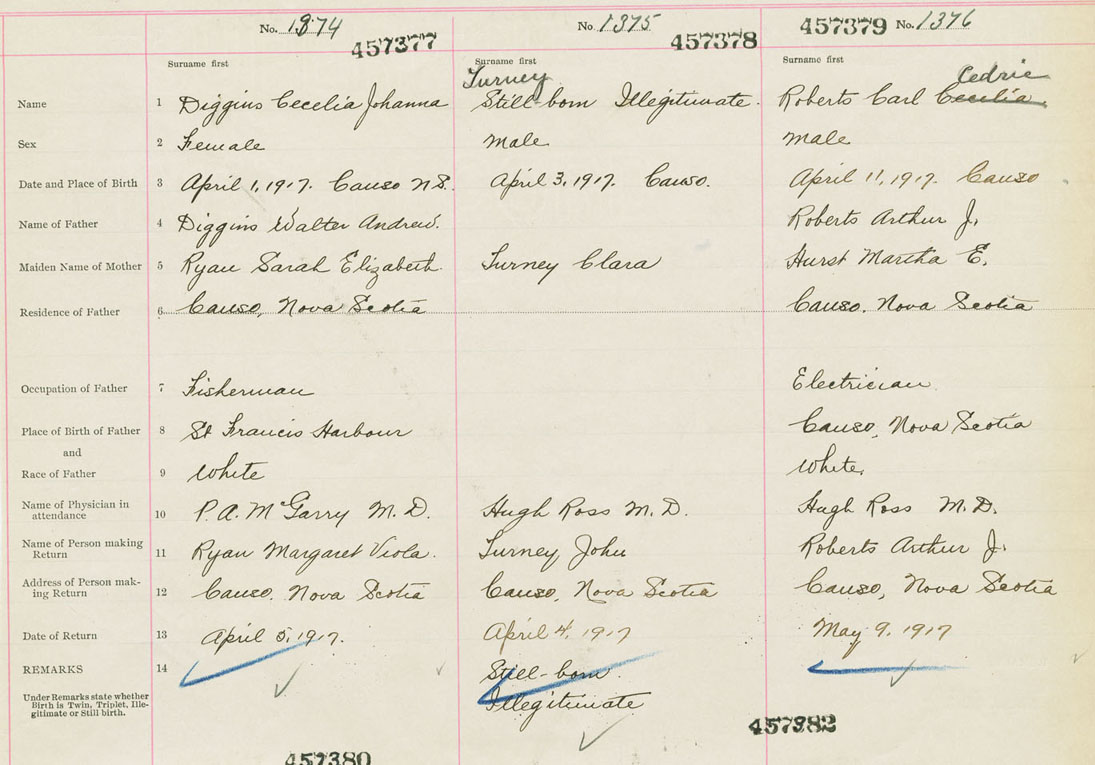 No. 1374
457377
No. 1375
457378
457379 No. 1376
Surname first
Surname first
Surname first
Turney
Cedric
Name 1 Diggins Cecelia Johanna
Still-born Illegitimate.
Roberts Carl Cecelia.
Sex 2 Female
Male
Male
Date and Place of Birth 3 April 1, 1917. Canso N.S.
April 3, 1917. Canso.
April 11, 1917. Canso
Name of Father 4 Diggins Walter Andrew.
Roberts Arthur J.
Maiden Name of Mother 5 Ryan Sarah Elizabeth.
Turney Clara
Hurst Martha E.
Residence of Father 6 Canso, Nova Scotia
Canso, Nova Scotia
Occupation of Father 7 Fisherman
Electrician
Place of Birth of Father 8 St Francis Harbour
Canso, Nova Scotia
and
Race of Father 9 White
White.
Name of Physician in
attendance 10 P. A. McGarry M.D.
Hugh Ross M.D.
Hugh Ross M.D.
Name of Person making
Return 11 Ryan Margaret Viola.
Turney, John
Roberts Arthur J.
Address of Person mak-
ing Return 12 Canso, Nova Scotia
Canso, Nova Scotia
Canso, Nova Scotia
Date of Return 13 April 5, 1917.
April 4, 1917
May 9, 1917
REMARKS 14
Still-born.
Illegitimate
Under Remarks state whether
Birth is Twin, Triplet, Ille-
gitimate or Still birth.
457380
457382